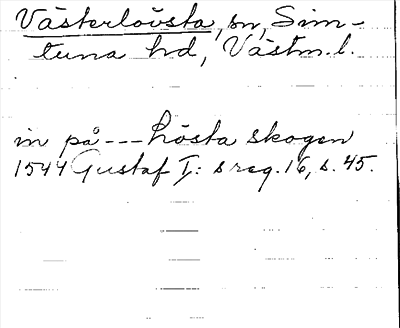 Västerlövsta, sn, Sim-
tuna hd, Västm.l.
in på --- Lösta skogen
1544 Gustaf I: s reg. 16, s. 45.